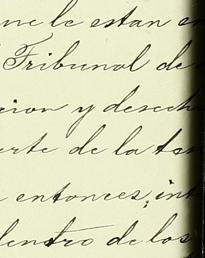 ue le estan en
Tribunal de
cion y derech
rte de la te
entonces; int
dentro de los